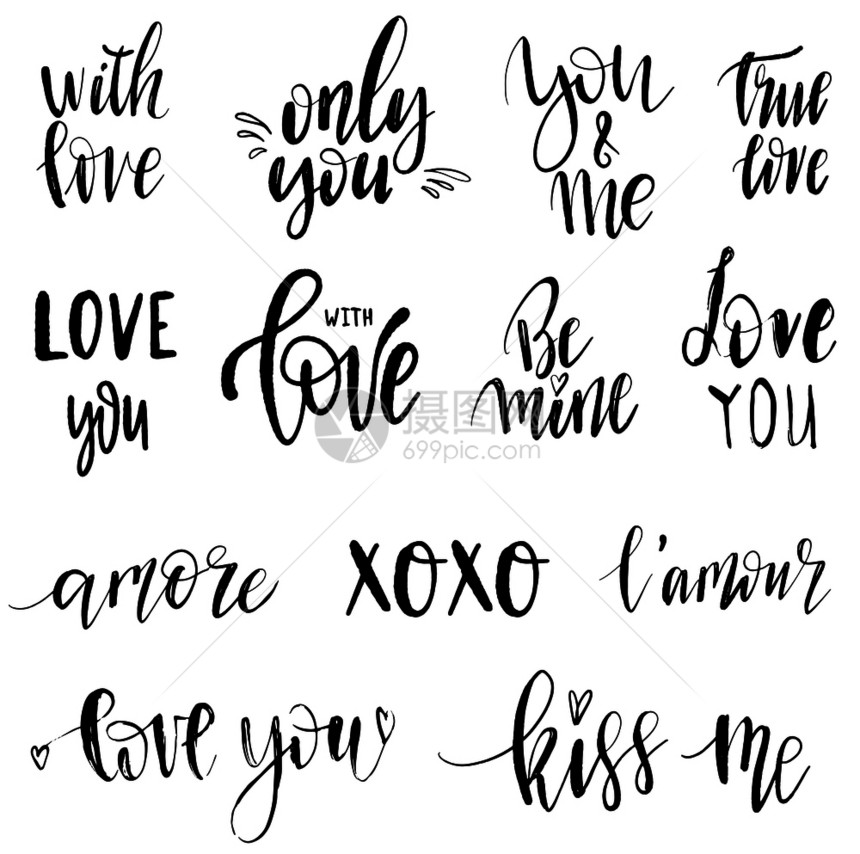 with
love
only
you
you
&
me
true
love
LOVE
you
WITH
love
Be
mine
Love
YOU
摄图网
699pic.com
amore
XOXO
l'amour
love you
kiss me